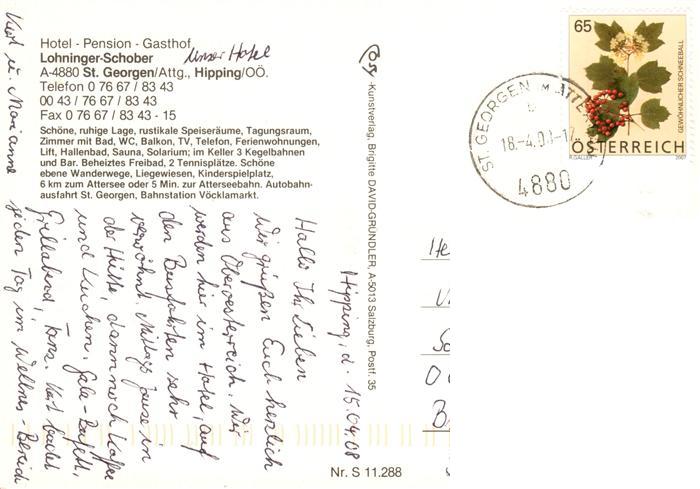 Hotel - Pension - Gasthof
Lohninger-Schober
unser Hotel
A-4880 St. Georgen/Attg., Hipping/OÖ.
Telefon 0 76 67 / 83 43
00 43 / 76 67 / 83 43
Fax 0 76 67 / 83 43 - 15
Schöne, ruhige Lage, rustikale Speiseräume, Tagungsraum,
Zimmer mit Bad, WC, Balkon, TV, Telefon, Ferienwohnungen,
Lift, Hallenbad, Sauna, Solarium; im Keller 3 Kegelbahnen
und Bar. Beheiztes Freibad, 2 Tennisplätze. Schöne
ebene Wanderwege, Liegewiesen, Kinderspielplatz,
6 km zum Attersee oder 5 Min. zur Atterseebahn. Autobahn-
ausfahrt St. Georgen, Bahnstation Vöcklamarkt.
Hipping, d. 15.04.08
Hallo Ihr Lieben
Wir grüßen Euch herzlich
aus Oberoesterreich. Wir
werden hier im Hotel, auf
den Busfahrten sehr
verwöhnt. Mittags Jause in
der Hütte, dann noch Kaffee
und Kuchen. Gala-Buffett,
Grillabend, Tanz. Kurt badet
jeden Tag im Wellnes-Bereich
Kurt u. Marianne
-Kunstverlag, Brigitte DAVID-GRÜNDLER, A-5013 Salzburg, Postf. 35
Nr. S 11.288
ST. GEORGEN IM ATTE
b
18.-4.08-17
4880
65
GEWÖHNLICHER SCHNEEBALL
ÖSTERREICH
A.GALLER
2007